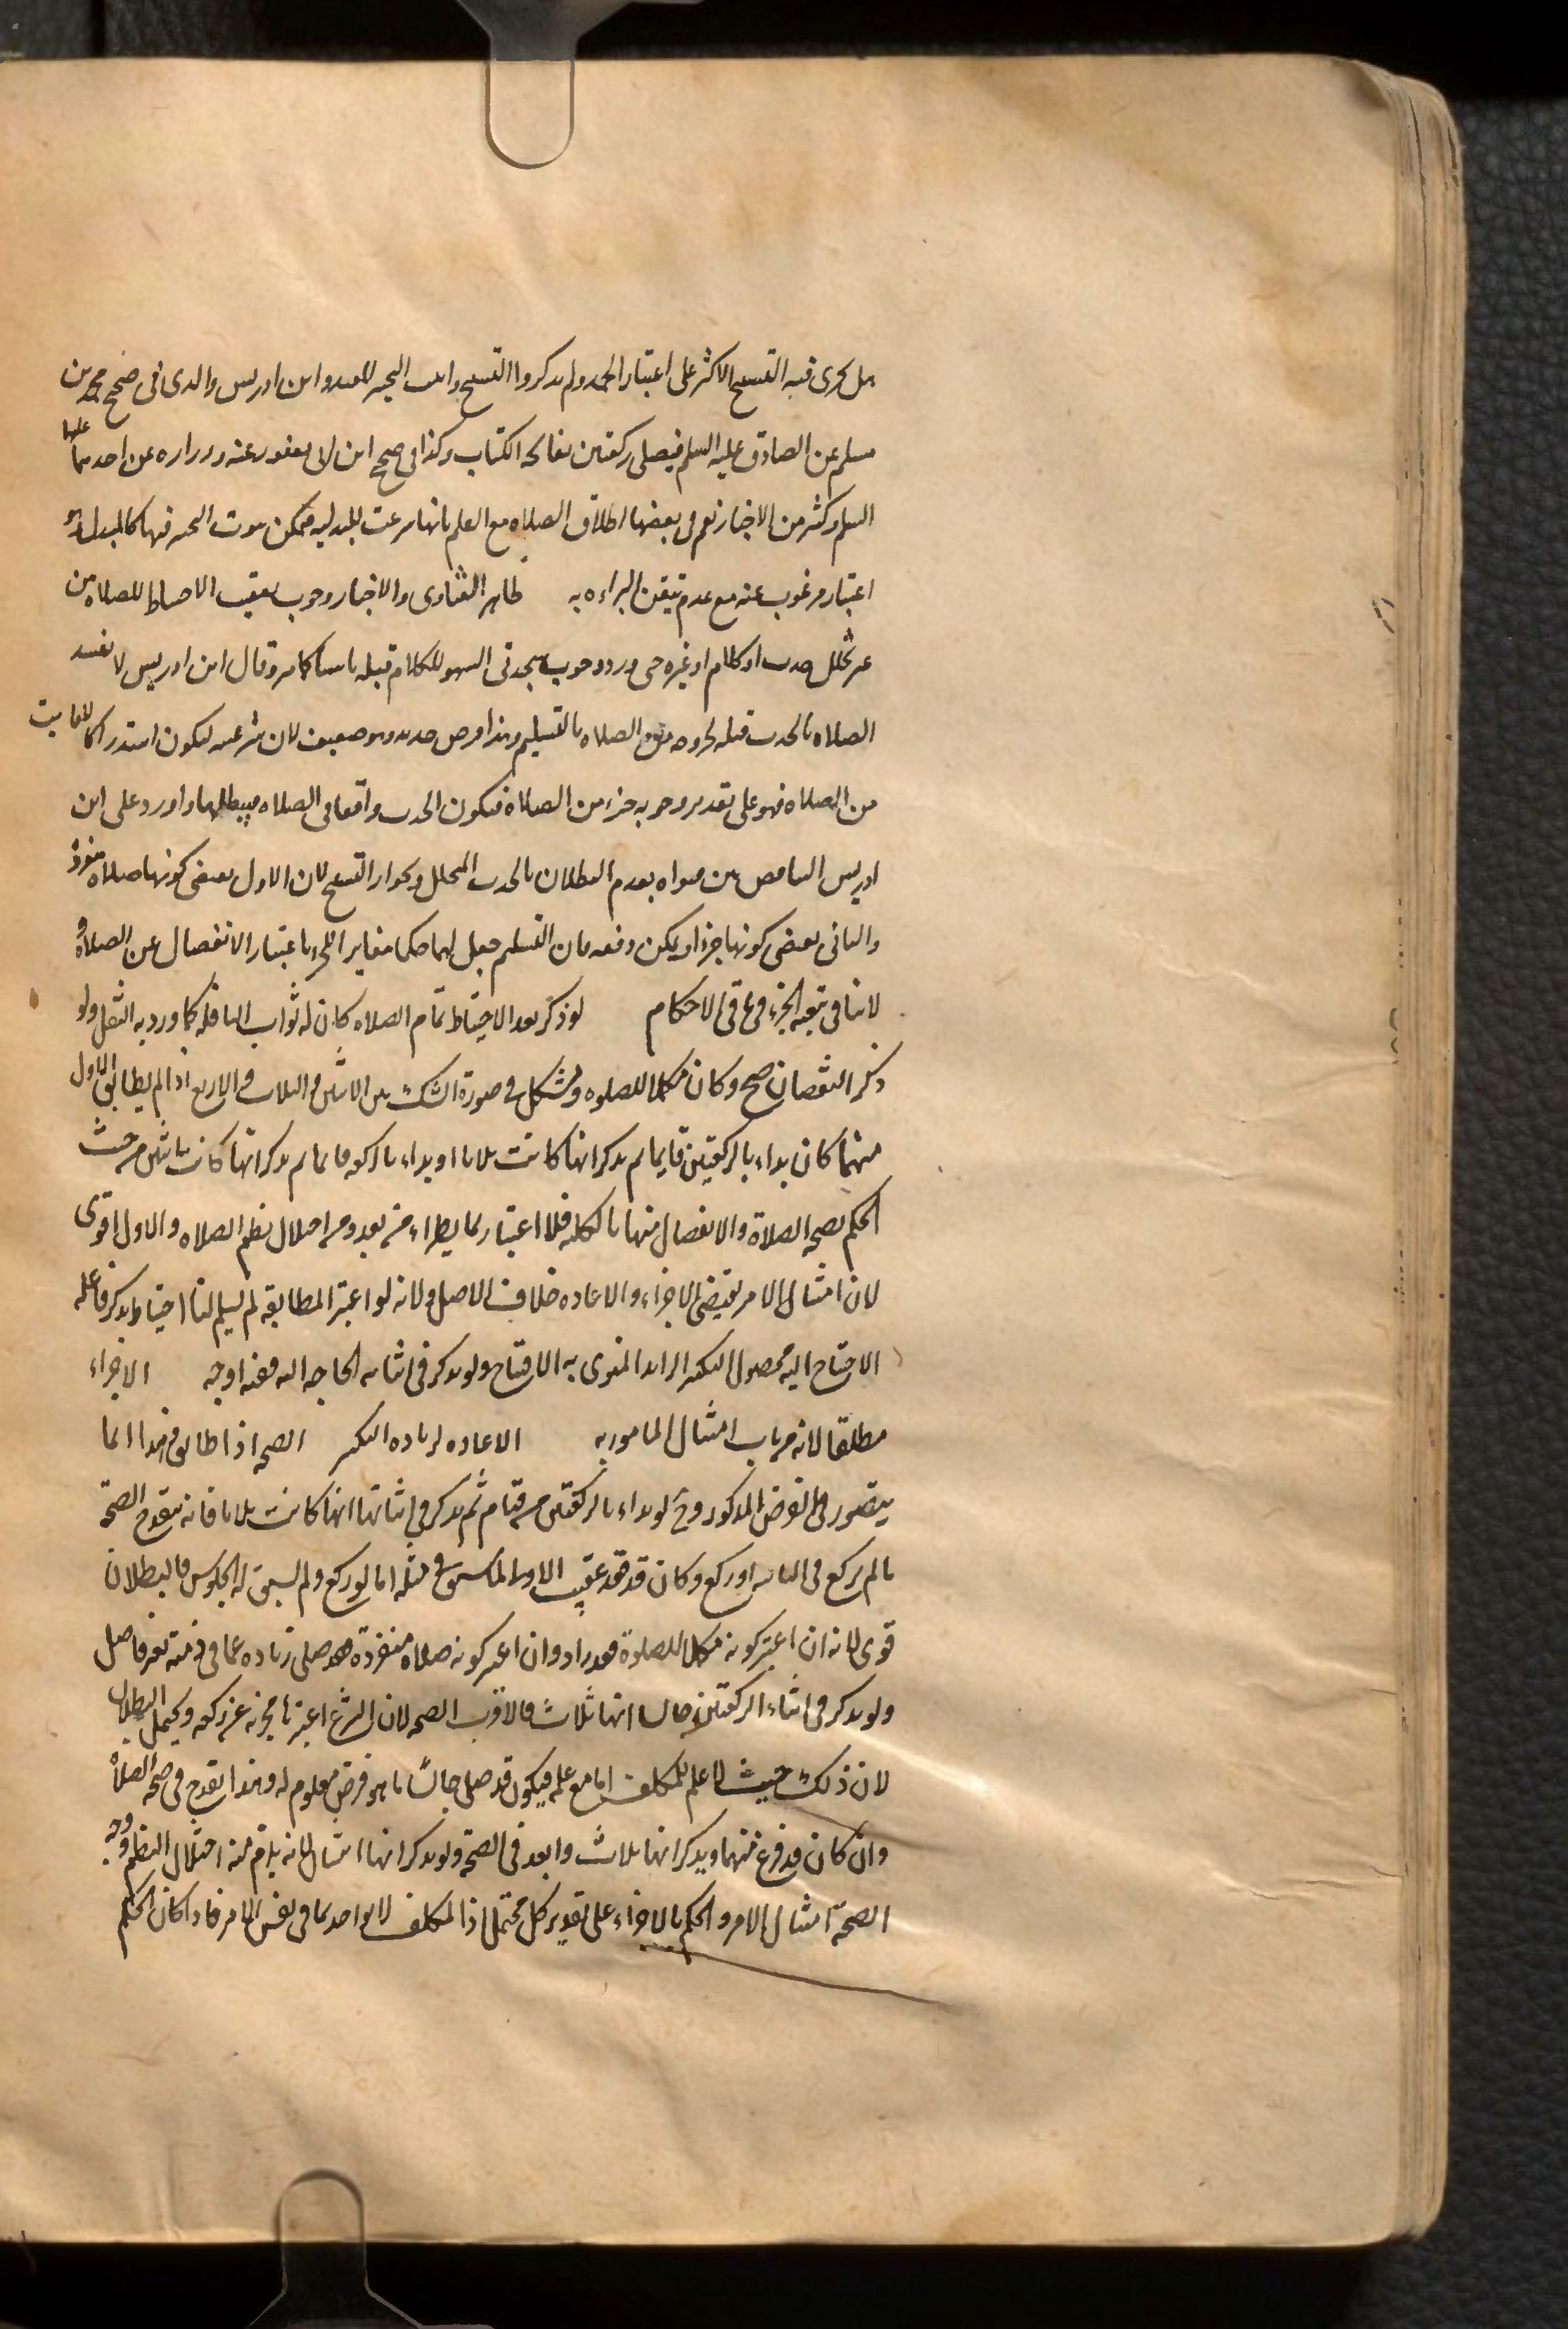 هل يجزى فيه التسبيح الاكثر على اعتبار الحمد ولم يذكروا التسبيح واثبت التخيير المفيد وابن ادريس والذى فى صحيح محمد بن
مسلم عن الصادق عليه السلم فيصلى ركعتين بفاتحه الكتاب وكذا فى صحيح ابن ابى يعفور عنه وزراره عن احدهما عليهما
السلم وكثير من الاخبار نعم فى بعضها اطلاق الصلاه مع العلم بانها شرعت للبدليه فيمكن ثبوت التخيير فيها كالمبدل وهو
اعتبار مرغوب عنه مع عدم تيقن البراءه به ظاهر الفتاوى والاخبار وجوب تعقيب الاحتياط للصلاه من
غير تخلل حدث او كلام او غيره حتى ورد وجوب سجدتى السهو للكلام قبله ناسيا كما مر وقال ابن ادريس لا تفسد
الصلاه بالحدث قبله لخروجه من الصلاه بالتسليم وهذا فرض جديد وهو ضعيف لان شرعيته ليكون استدراكا للفايت
من الصلاه فهو على تقدير وجوبه جزء من الصلاه فيكون الحدث واقعا فى الصلاه فيبطلها واورد على ابن
ادريس التناقض بين فتواه بعدم البطلان بالحدث المتخلل وبجواز التسبيح لان الاول يقتضى كونها صلاه منفرده
والثانى يقتضى كونها جزءا ويمكن دفعه بان التسليم جعل لها حكما مغايرا للجزء باعتبار الانفصال عن الصلاه و
لا ينافى تبعيه الجزء فى باقى الاحكام لو ذكر بعد الاحتياط تمام الصلاه كان له ثواب النافله كما ورد به النقل ولو
ذكر النقصان صح وكان مكملا للصلوه ويشكل فى صورة الشك بين الاثنين والثلاث والاربع اذا لم يطابق الاول
منهما كان بداء بالركعتين قايما ثم يذكر انها كانت ثلاثا او بداء بالركعه قايما ثم يذكر انها كانت اثنتين من حيث
الحكم بصحه الصلاة والانفصال منها بالكليه فلا اعتبار بما يطراء من بعد ومن اختلال نظم الصلاه والاول اقوى
لان امتثال الامر يقتضى الاجزاء والاعاده خلاف الاصل ولانه لو اعتبر المطابقه لم يسلم لنا احتياط يذكر فاعله
الاحتياج اليه لحصول التكبير الزايد المنوى به الافتتاح ولو يذكر فى اثنائه الحاجه اليه ففيه اوجه الاجزاء
مطلقا لانه من باب امتثال المامور به الاعاده لزياده التكبير الصحه اذا طابق وهذا انما
يتصور فى الفرض المذكور وح لو بداء بالركعتين من قيام ثم يذكر فى اثنائها انها كانت ثلاثا فانه يتقدح الصحة
ما لم يركع فى الثانيه او ركع وكان قد قعد عقيب الاولى فى مثله اما لو ركع ولم يسبق له الجلوس فالبطلان
قوى لانه ان اعتبر كونه مكملا للصلوة فقد زاد وان اعتبر كونه صلاه منفردة فقد صلى زياده عما فى ذمته بغير فاصل
ولو يذكر فى اثناء الركعتين جالسا انها ثلاث فالاقرب الصحه لان الشرع اعتبرهما مجزيه عن ركعه ويحتمل البطلان
لان ذلك حيث لا علم للمكلف اما مع علمه فيكون قد صلى جالسا ما هو فرض معلوم له وهذا يقدح فى صحه الصلاة
وان كان قد فرغ منهما ويذكر انها ثلاث وابعد فى الصحة ولو يذكر انها اثنتان لانه يلزم منه اختلال النظم ووجه
الصحة امتثال الامر والحكم بالاجزاء على تقدير كل محتمل اذ المكلف لا يواخذ بما فى نفس الامر فاذا كان الحكم